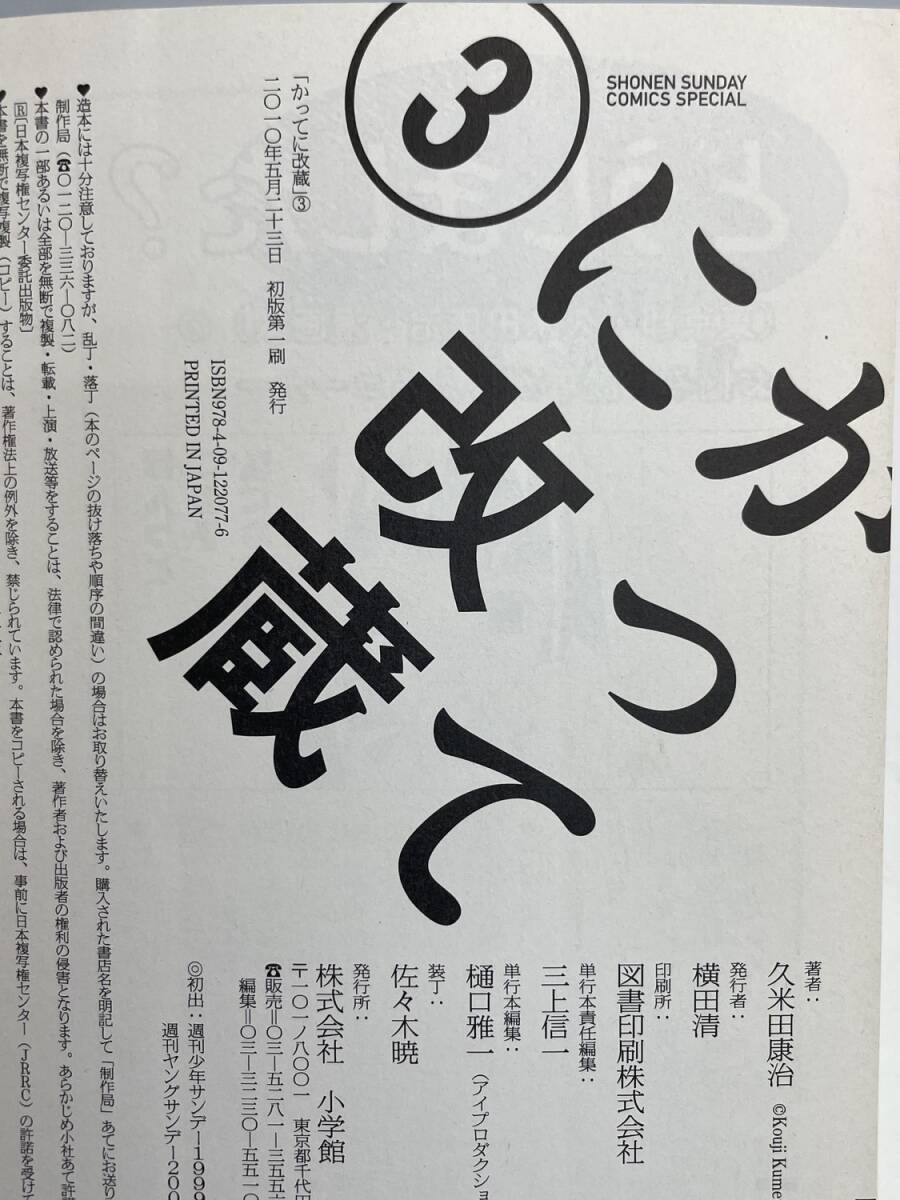 SHONEN SUNDAY
COMICS SPECIAL
かってに
改蔵
③
「かってに改蔵」③
二〇一〇年五月二十三日　初版第一刷　発行
ISBN978-4-09-122077-6
PRINTED IN JAPAN
著者：
久米田康治　©Kouji Kume
発行者：
横田清
印刷所：
図書印刷株式会社
単行本責任編集：
三上信一
単行本編集：
樋口雅一（アイプロダクショ
装丁：
佐々木暁
発行所：
株式会社　小学館
〒一〇一-八〇〇一　東京都千代田
☎販売＝〇三-五二八一-三五五六
編集＝〇三-三二三〇-五五一〇
◎初出：週刊少年サンデー1999
週刊ヤングサンデー200
♥造本には十分注意しておりますが、乱丁・落丁（本のページの抜け落ちや順序の間違い）の場合はお取り替えいたします。購入された書店名を明記して「制作局」あてにお送り
制作局（☎〇一二〇-三三六-〇八二）
♥本書の一部あるいは全部を無断で複製・転載・上演・放送等をすることは、法律で認められた場合を除き、著作者および出版者の権利の侵害となります。あらかじめ小社あて許諾
Ⓡ[日本複写権センター委託出版物]
♥本書を無断で複写複製（コピー）することは、著作権法上の例外を除き、禁じられています。本書をコピーされる場合は、事前に日本複写権センター（JRRC）の許諾を受けて